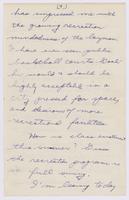 (3)
has impressed me with
the growing recreation
mindedness of the layman
I have even seen public
basketball courts. God
would & should be
highly acceptable in a
city pressed for space,
and desirous of more
recreational facilities.
How is class
this summer? Guess
the recreation program is
in full swing.
I'm leaving today